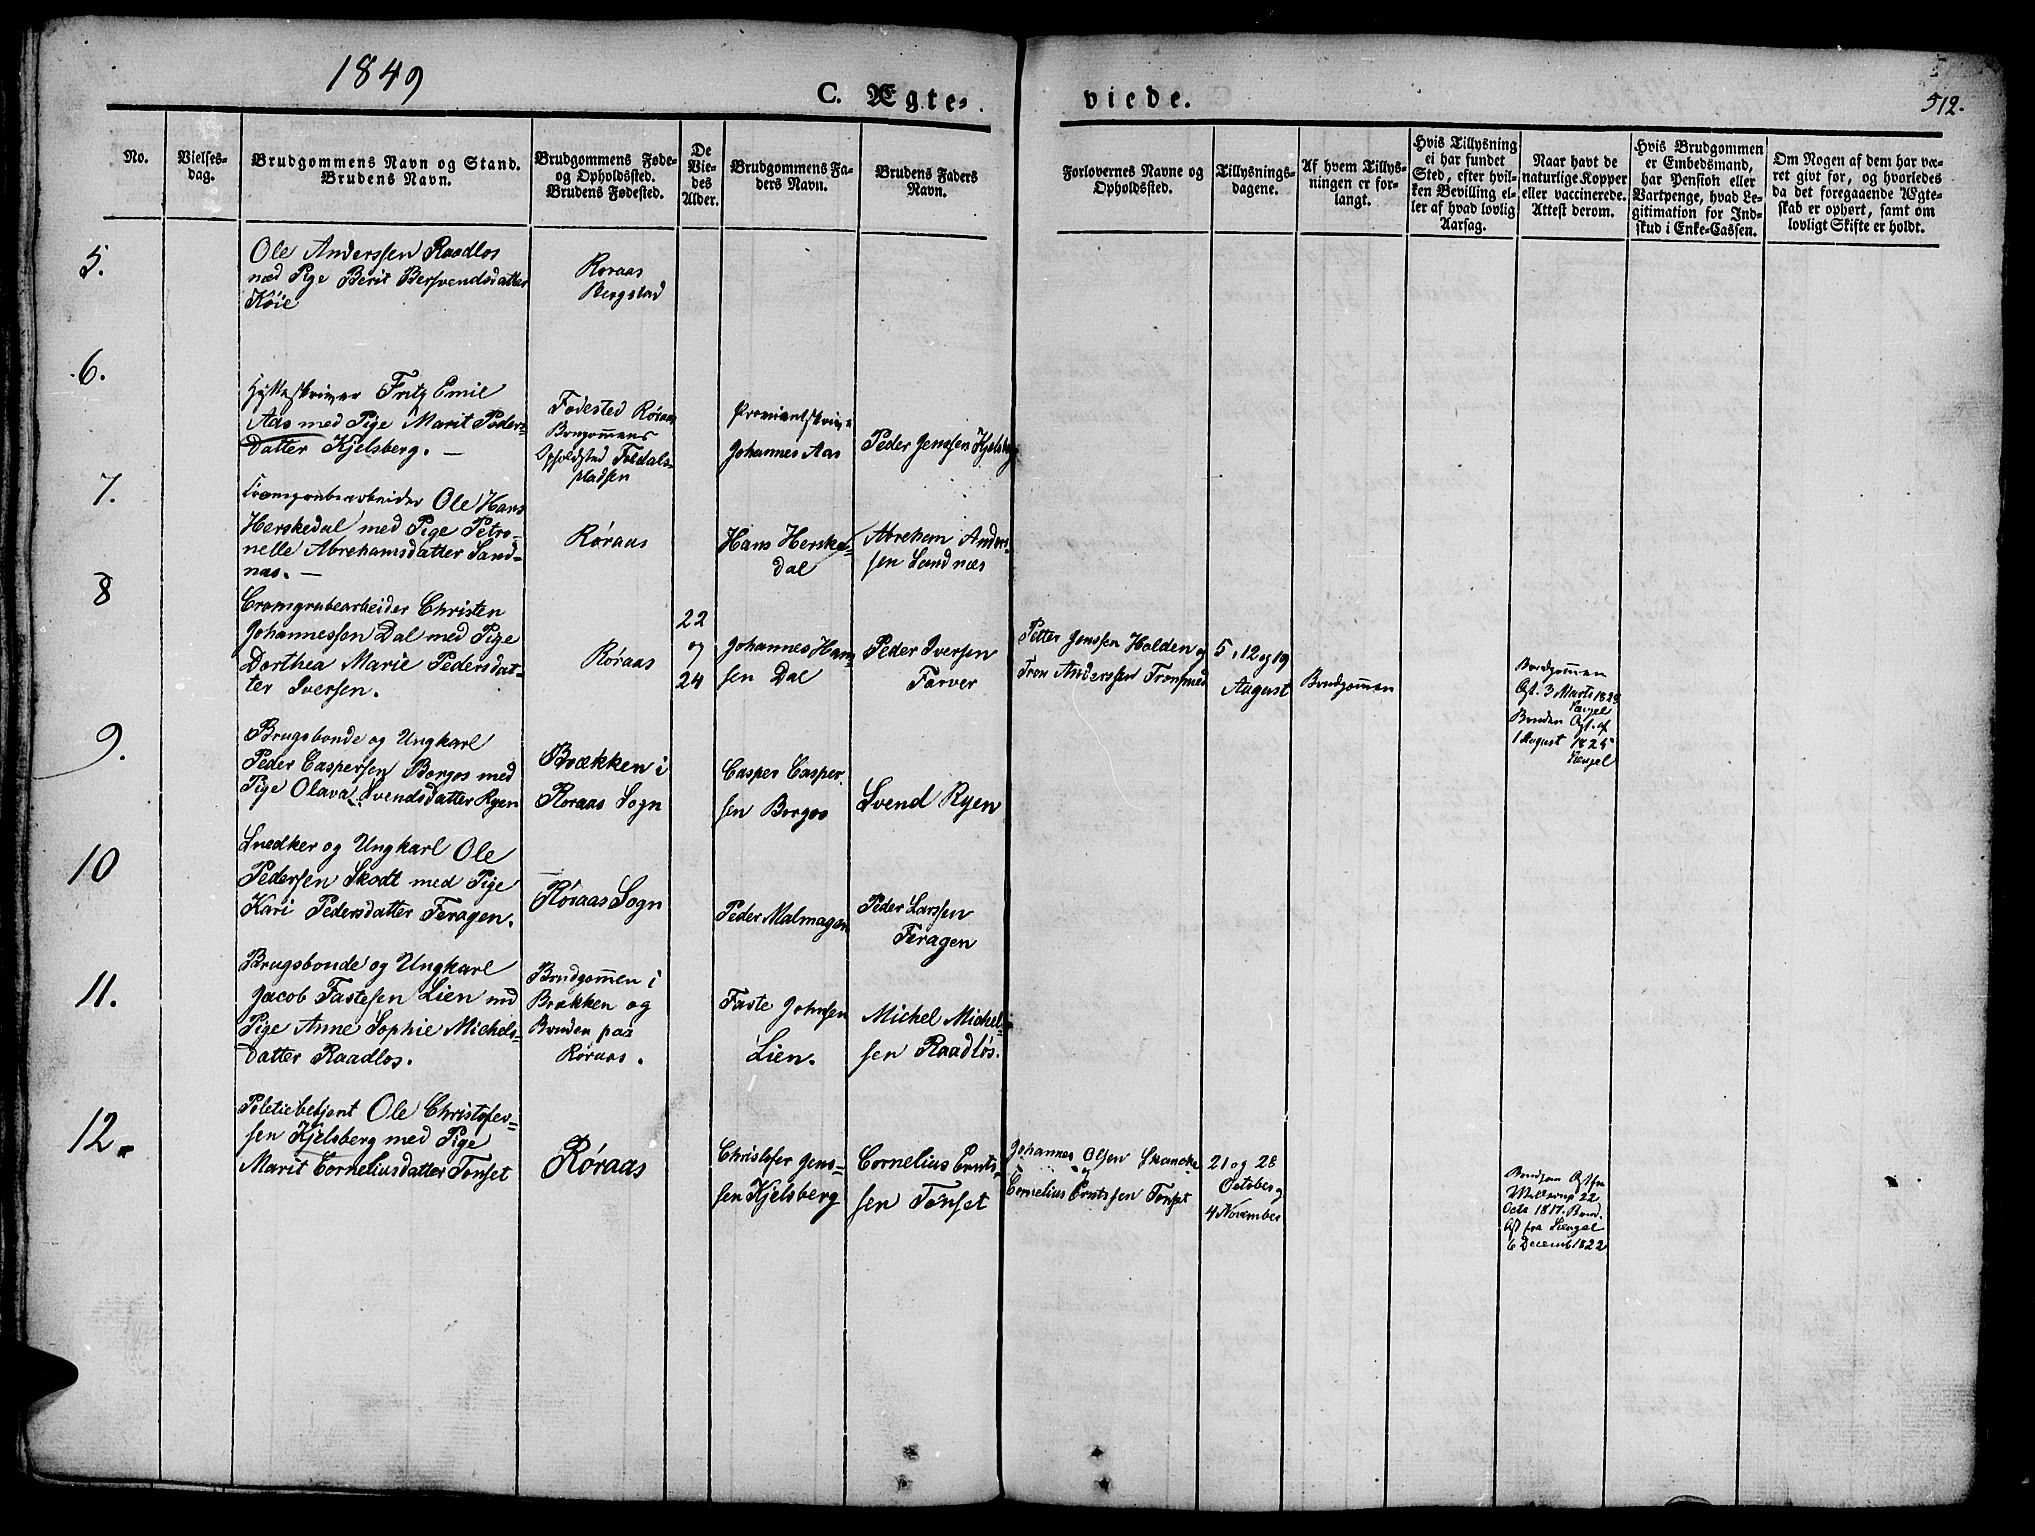 1849
C. Ægte-
viede.
512.
No.
Vielses-
dag.
Brudgommens Navn og Stand.
Brudens Navn.
Brudgommens Føde-
og Opholdssted.
Brudens Fødested.
De
Vie-
des
Alder.
Brudgommens Fa-
ders Navn.
Brudens Faders
Navn.
Forlovernes Navne og
Opholdssted.
Tillysnings-
dagene.
Af hvem Tillys-
ningen er for-
langt.
Hvis Tillysning
ei har fundet
Sted, efter hvil-
ken Bevilling el-
ler af hvad lovlig
Aarsag.
Naar havt de
naturlige Kopper
eller vaccinerede.
Attest derom.
Hvis Brudgommen
er Embedsmand,
har Pension eller
Vartpenge, hvad Le-
gitimation for Ind-
skud i Enke-Cassen.
Om Nogen af dem har væ-
ret givt før, og hvorledes
da det foregaaende Ægte-
skab er ophørt, samt om
lovligt Skifte er holdt.
5.
Ole Anderssen Raadlos
med Pige Berit Bersvendsdatter
Köie
Roraas
Bergstad
6.
Hytteskriver Fritz Emil
Aas med Pige Marit Peders-
datter Kjelsberg. —
Fødested Røraas
Brugommens
Opholdsted Foldals-
pladsen
Proviantskriver
Johannes Aas
Peder Jenssen Kjelsberg
7.
Cromgrubearbeider Ole Hans
Herskedal med Pige Petro-
nelle Abrehamsdatter Sand-
næs. —
Røraas
Hans Herske-
dal
Abrehem Anders-
sen Sandnæs
8
Cromgrubearbeider Christen
Johannessen Dal med Pige
Dorthea Marie Pedersdat-
ter Iversen.
Røraas
22
og
24
Johannes Han-
sen Dal
Peder Iversen
Farver
Petter Jonssen Holden og
Tron Anderssen Tronsmed
5, 12 og 19
August
Brudgommen
Brudgommen
Att. 3 Marts 1828
Længel
Bruden Att. af
1 August 1825
Længel
9.
Brugsbonde og Ungkarl
Peder Caspersen Borgos med
Pige Olava Svendsdatter Ryen
Brækken i
Röraas Sogn
Casper Casper-
sen Borgos
Svend Ryen
10
Snedker og Ungkarl Ole
Pedersen Skodt med Pige
Kari Pedersdatter Feragen.
Röraas Sogn
Peder Malmagen
Peder Larssen
Feragen
11.
Brugsbonde og Ungkarl
Jacob Fastesen Lien md
Pige Anne Sophie Michels-
datter Raadlos.
Brudgommen i
Brækken og
Bruden paa
Røraas.
Faste Johnsen
Lien.
Michel Michel-
sen Raadlös.
12.
Politiebetjent Ole Christofer-
sen Kjelsberg med Pige
Marit Corneliusdatter Tonset
Röraas
Christofer Jens-
sen Kjelsberg
Cornelius Ernts-
sen Tönset
Johannes Olsen Skancke
og
Cornelius Erntssen Tonset
21 og 28
October og
4 November
22
Octo 1817. Brud.
Att fra Længel
6 Decemb 1822